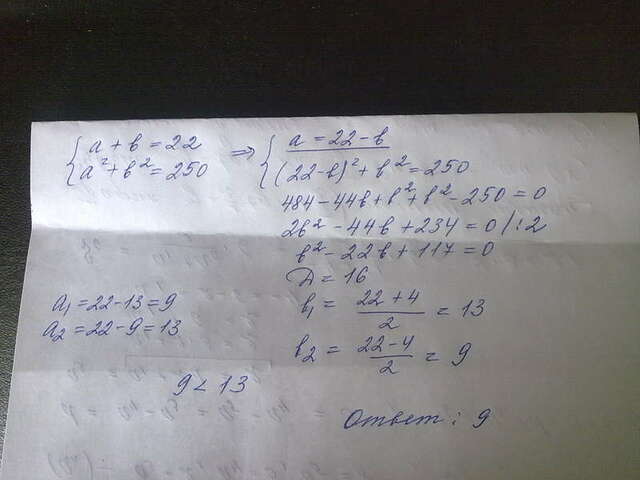 a + b = 22
a² + b² = 250
⇒ a = 22 - b
(22-b)² + b² = 250
484 - 44b + b² + b² - 250 = 0
2b² - 44b + 234 = 0 /:2
b² - 22b + 117 = 0
D = 16
b₁ = (22+4)/2 = 13
b₂ = (22-4)/2 = 9
a₁ = 22-13 = 9
a₂ = 22-9 = 13
9 < 13
Ответ: 9